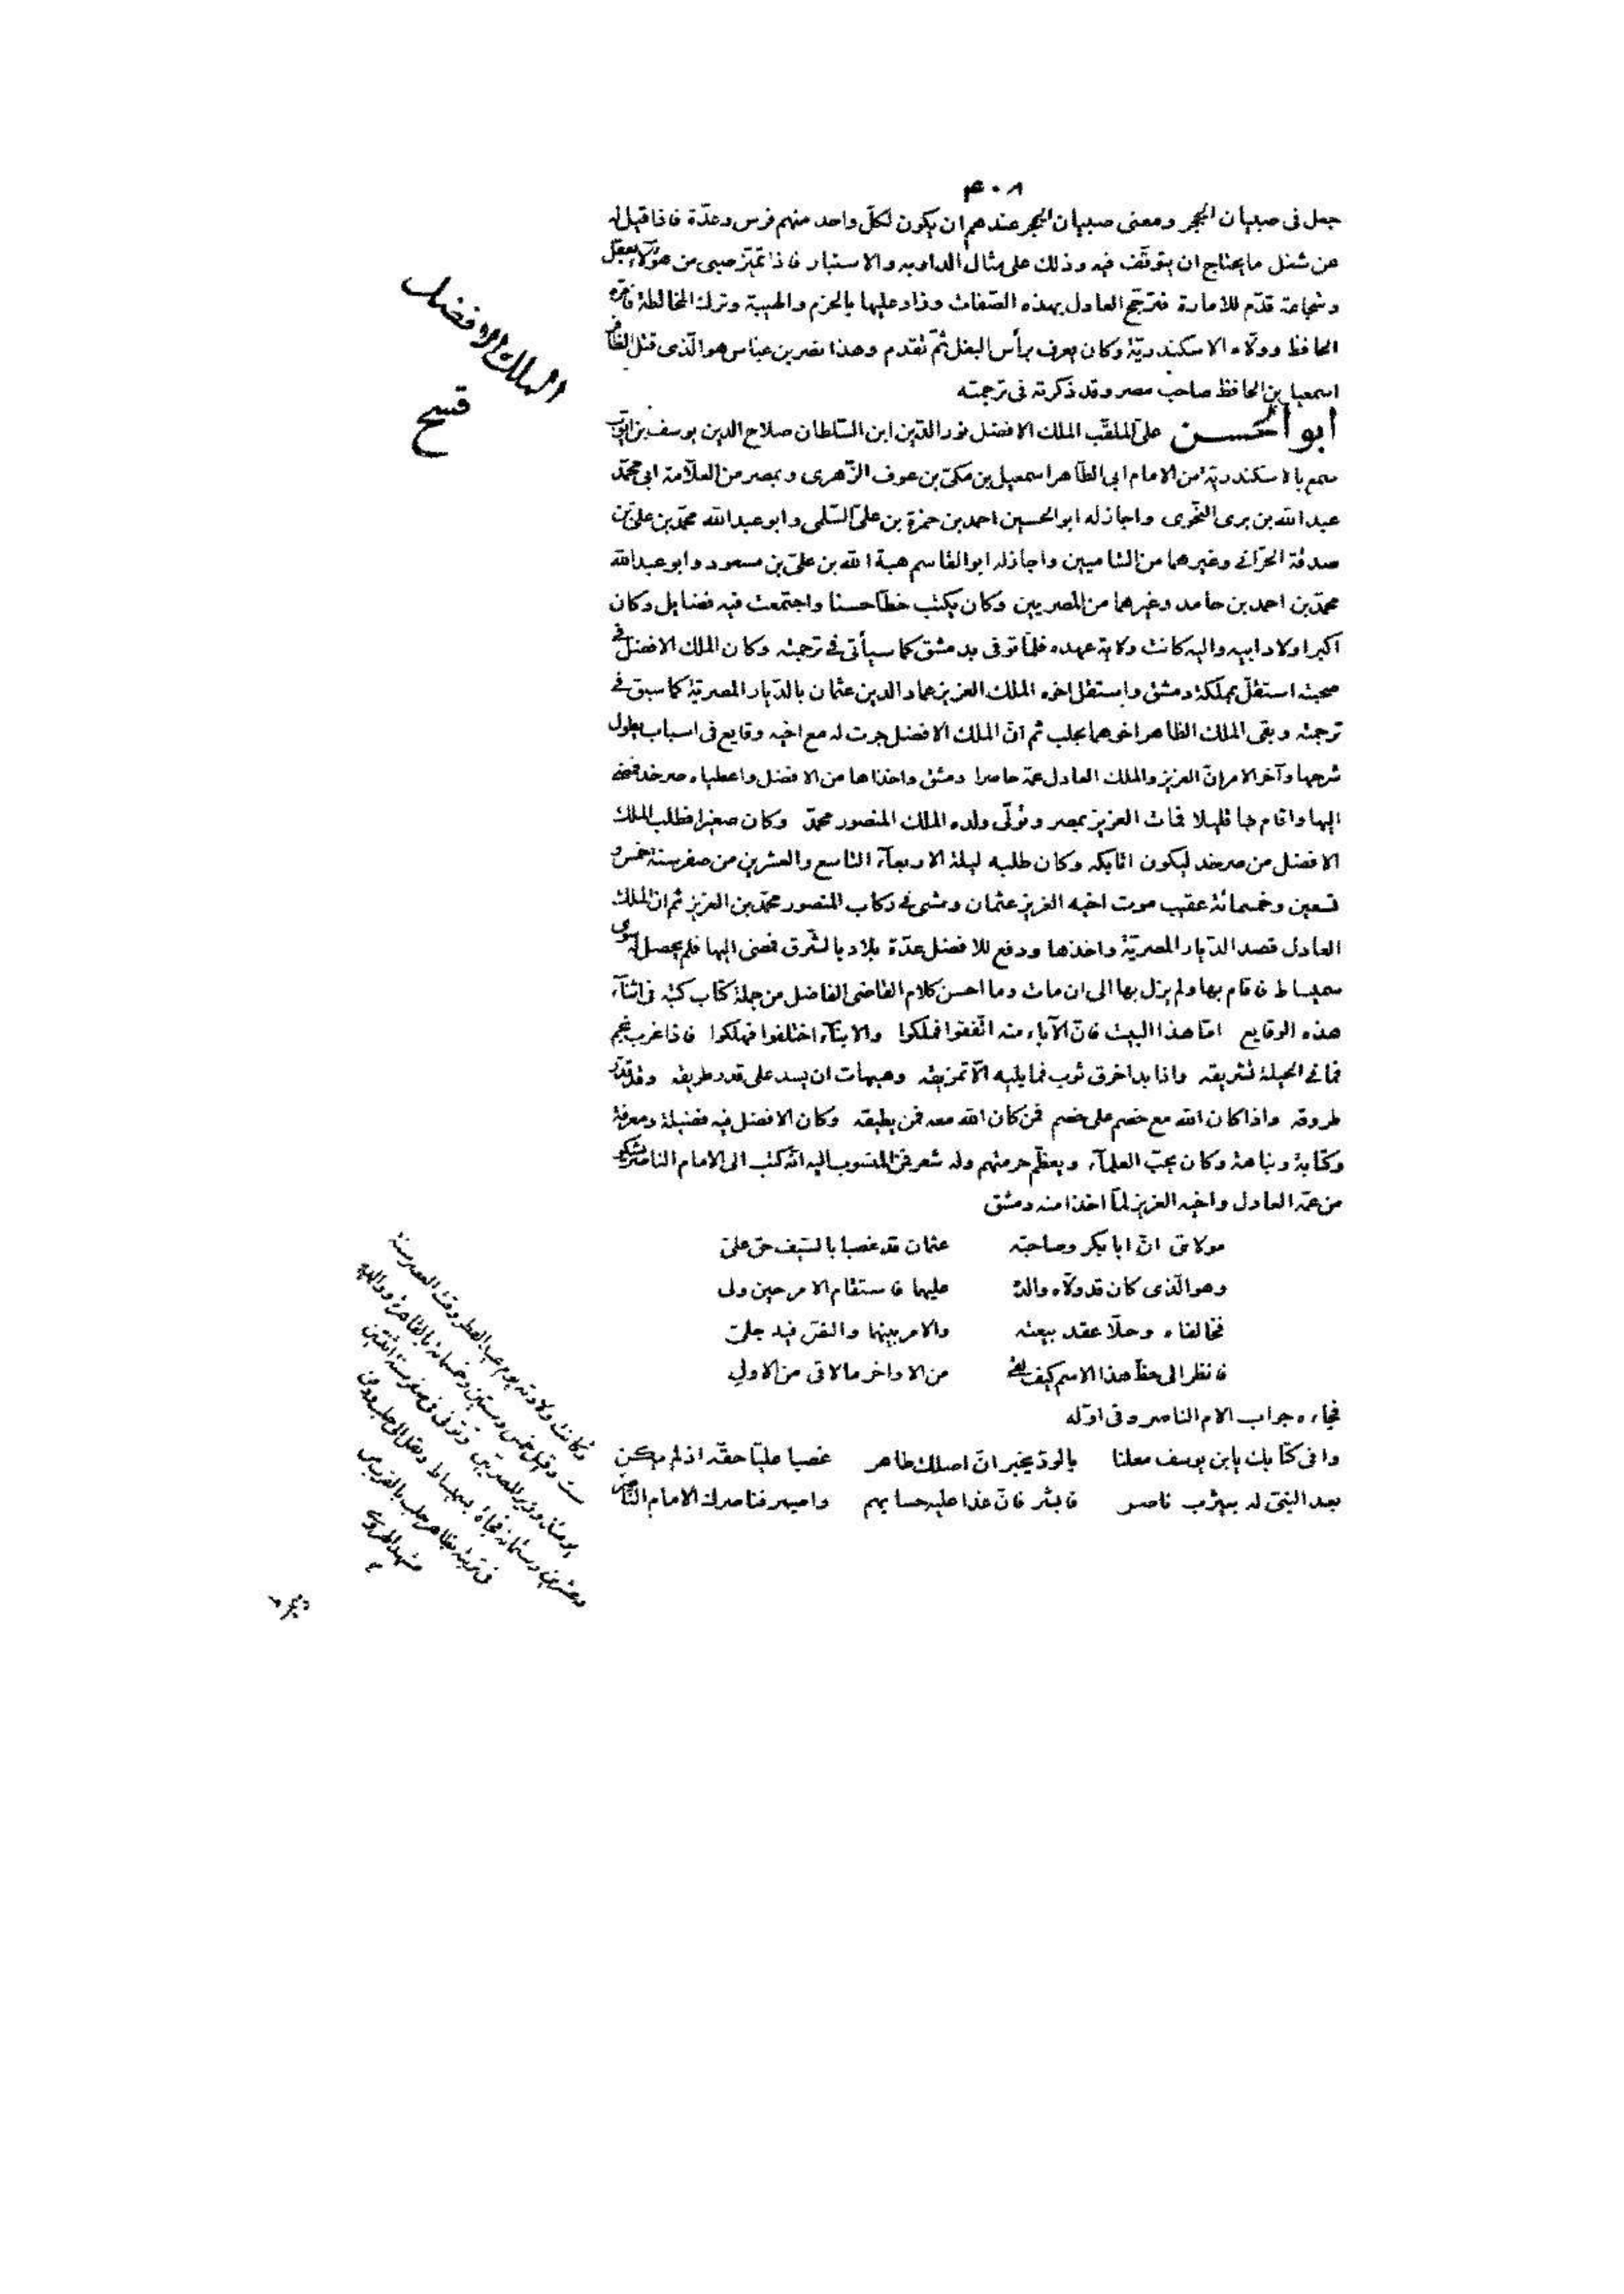 ٤٠٨
جعل فى صبيان الحجر ومعنى صبيان الحجر عندهم ان يكون لكلّ واحد منهم فرس وعدّة فاذا قيل له
عن شغل ما يحتاج ان يتوقّف فيه وذلك على مثال الداويه والاستبار فاذا تميّز صبى من هؤلاء بعقل
وشجاعة قدّم للامارة فترجّح العادل بهذه الصّفات وزاد عليها بالحزم والهيبة وترك المخالطة فامّره
الحافظ وولّاه الاسكندريّة وكان يعرف برأس البغل ثمّ تقدم وهذا نصر بن عبّاس هو الّذى قتل الظافر
اسمعيل بن الحافظ صاحب مصر وقد ذكرته فى ترجمته
ابو الحسن علىّ الملقّب الملك الافضل نور الدّين ابن السّلطان صلاح الدين يوسف بن ايّوب
سمع بالاسكندريّة من الامام ابى الطاهر اسمعيل بن مكىّ بن عوف الزّهرى وبمصر من العلّامة ابى محمّد
عبد الله بن برى النّحوى واجاز له ابو الحسين احمد بن حمزة بن علىّ السّلمى وابو عبد الله محمّد بن علىّ بن
صدقة الحرّانى وغيرهما من الشاميين واجاز له ابو القاسم هبة الله بن علىّ بن مسعود وابو عبد الله
محمّد بن احمد بن حامد وغيرهما من المصريين وكان يكتب خطّا حسنا واجتمعت فيه فضايل وكان
اكبر اولاد ابيه واليه كانت ولاية عهده فلمّا توفى بدمشق كما سيأتى فى ترجمته وكان الملك الافضل فى
صحبته استقلّ بمملكة دمشق واستقل اخوه الملك العزيز عماد الدين عثمان بالدّيار المصريّة كما سبق فى
ترجمته وبقى الملك الظاهر اخوهما بحلب ثم انّ الملك الافضل جرت له مع اخيه وقايع فى اسباب يطول
شرحها وآخر الامر انّ العزيز والملك العادل عمّه حاصرا دمشق واخذاها من الافضل واعطياه صرخد فمضى
اليها واقام بها قليلا فمات العزيز بمصر وتولّى ولده الملك المنصور محمّد وكان صغيرا فطلب الملك
الافضل من صرخد ليكون اتابكه وكان طلبه ليلة الاربعآء التاسع والعشرين من صفر سنة خمس و
تسعين وخمسمائة عقيب موت اخيه العزيز عثمان ومشى فى ركاب المنصور محمّد بن العزيز ثم ان الملك
العادل قصد الدّيار المصريّة واخذها ودفع للافضل عدّة بلاد بالشّرق فمضى اليها فلم يحصل له سوى
سميساط فاقام بها ولم يزل بها الى ان مات وما احسن كلام القاضى الفاضل من جملة كتاب كتبه فى اثنآء
هذه الوقايع امّا هذا البيت فانّ الآباء منه اتّفقوا فملكوا والابنآء اختلفوا فهلكوا فاذا غرب نجم
فما فى الحيلة تشريقه واذا بدا خرق ثوب فما يليه الّا تمزيقه وهيهات ان يسد على قدر طريقه وقد قدّر
طروقه واذا كان الله مع خصم على خصم فمن كان الله معه فمن يطيقه وكان الافضل فيه فضيلة ومعرفة
وكتابة ونباهة وكان يحبّ العلمآء ويعظّم حرمتهم وله شعر فمن المنسوب اليه انّه كتب الى الامام الناصر يشكو
من عمّه العادل واخيه العزيز لمّا اخذا منه دمشق
مولاى انّ ابا بكر وصاحبه عثمان قد غصبا بالسّيف حق على
وهو الّذى كان قد ولّاه والده عليهما فاستقام الامر حين ولى
فخالفاه وحلّا عقد بيعته والامر بينهما والنصّ فيه جلى
فانظر الى حظّ هذا الاسم كيف لقى من الاواخر ما لاقى من الاولى
فجاءه جواب الامام الناصر وفى اوّله
وافى كتابك يابن يوسف معلنا بالودّ يخبر انّ اصلك طاهر غصبا عليّا حقّه اذ لم يكن
بعد النبىّ له بيثرب ناصر فابشر فانّ غدا عليه حسابهم واصبر فناصرك الامام النّاصر
الملك الافضل
وكانت ولادته يوم عيد الفطر وقت العصر سنة
ست وقيل خمس وستين وخمسمائة بالقاهرة ووالده
يومئذ وزير المصريين وتوفى فى صفر سنة اثنتين
وعشرين وستمائة فجأة بسميساط ونقل الى حلب ودفن
فى تربته بظاهر حلب بالقرب من
مشهد الهروى